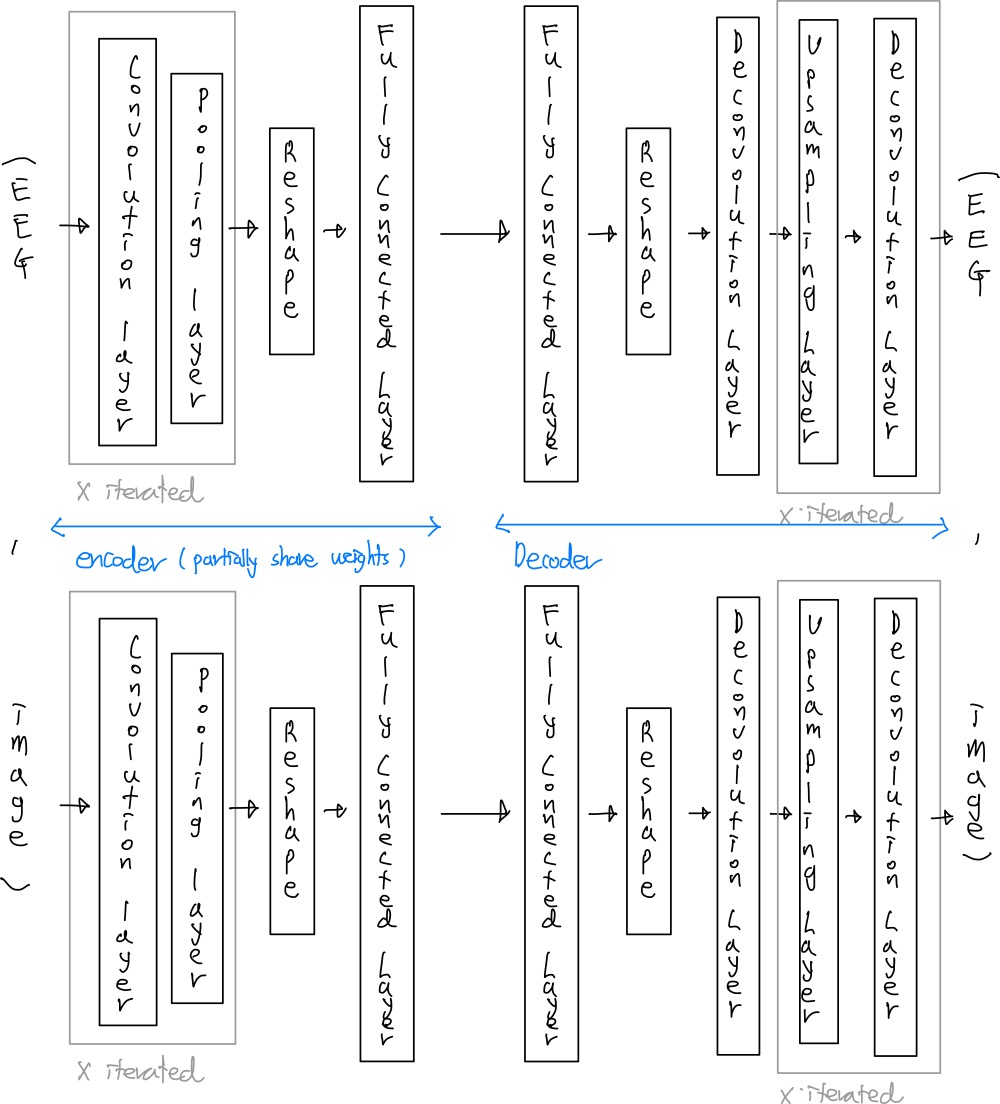 (EEG
Convolution layer
Pooling layer
Reshape
Fully Connected Layer
Fully Connected Layer
Reshape
Deconvolution Layer
Upsampling Layer
Deconvolution Layer
(EEG
X iterated
X iterated
encoder (partially share weights)
Decoder
,
,
image)
Convolution layer
Pooling layer
Reshape
Fully Connected Layer
Fully Connected Layer
Reshape
Deconvolution Layer
Upsampling Layer
Deconvolution Layer
image)
X iterated
X iterated